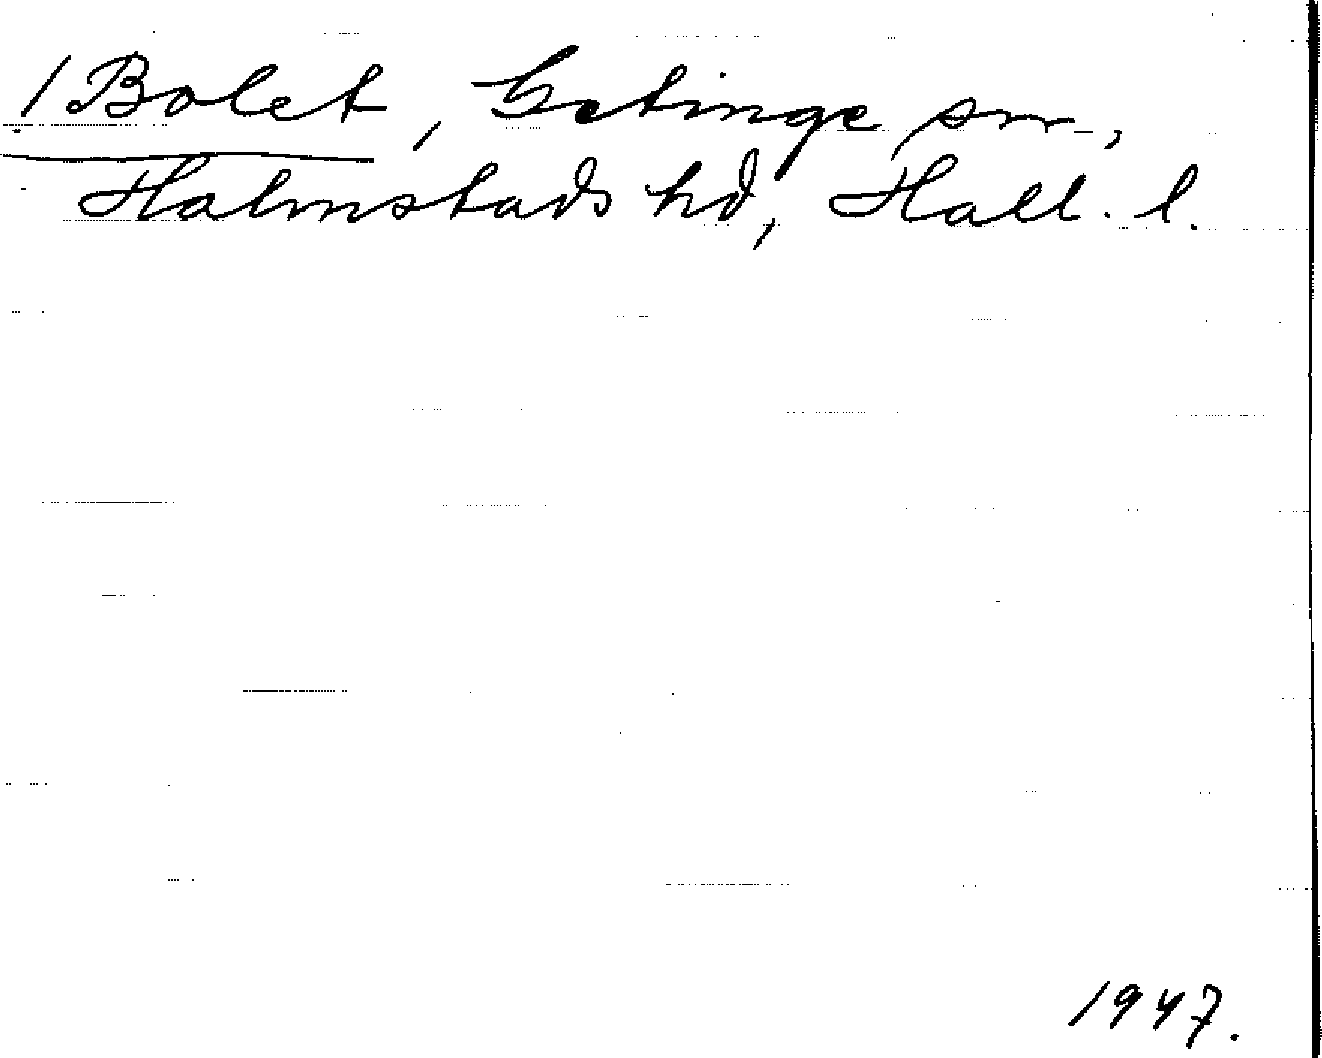 / Bolet, Getinge sn.,
Halmstads hd, Hall. l.
1947.